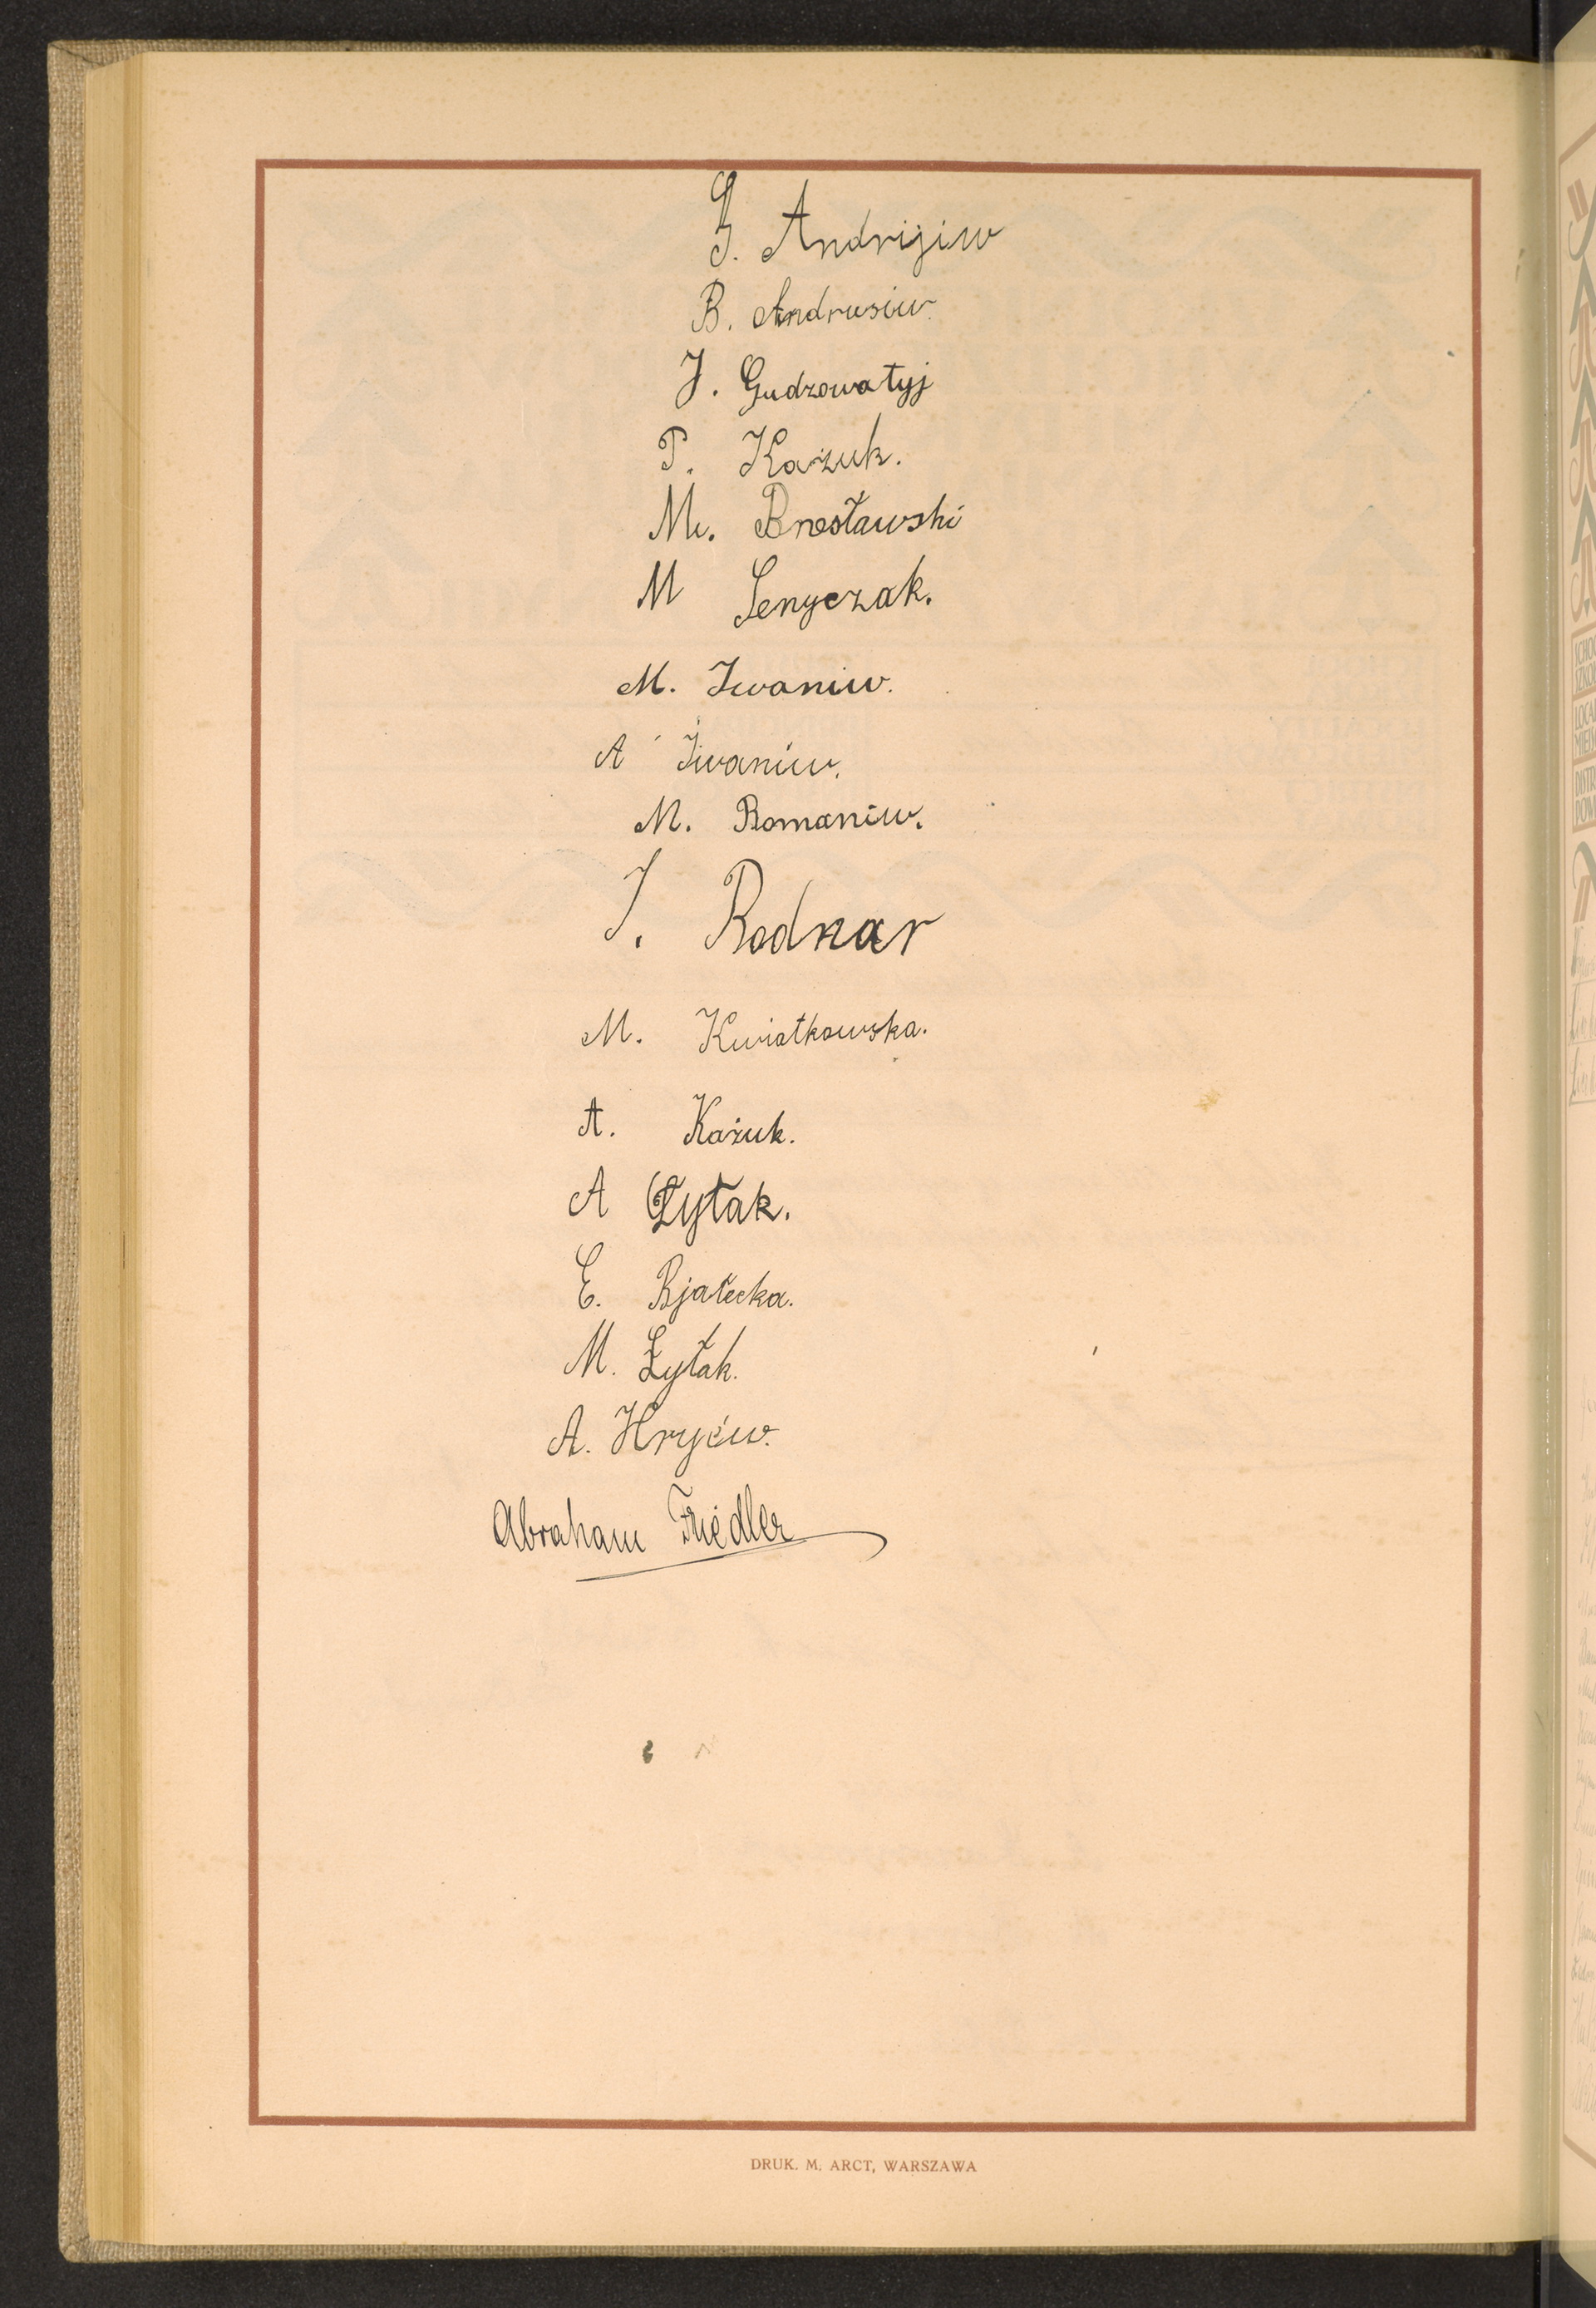 G. Andrijiw
B. Andrusiw.
J. Gudzowatyj
P. Każuk.
M. Bresławski
M Senyczak.
M. Iwaniw.
A Iwaniw.
M. Romaniw.
J. Bodnar
M. Kwiatkowska.
A. Każuk.
A Żytak.
E. Bjałecka.
M. Żytak.
A. Hryćiw.
Abraham Friedler
DRUK. M. ARCT, WARSZAWA